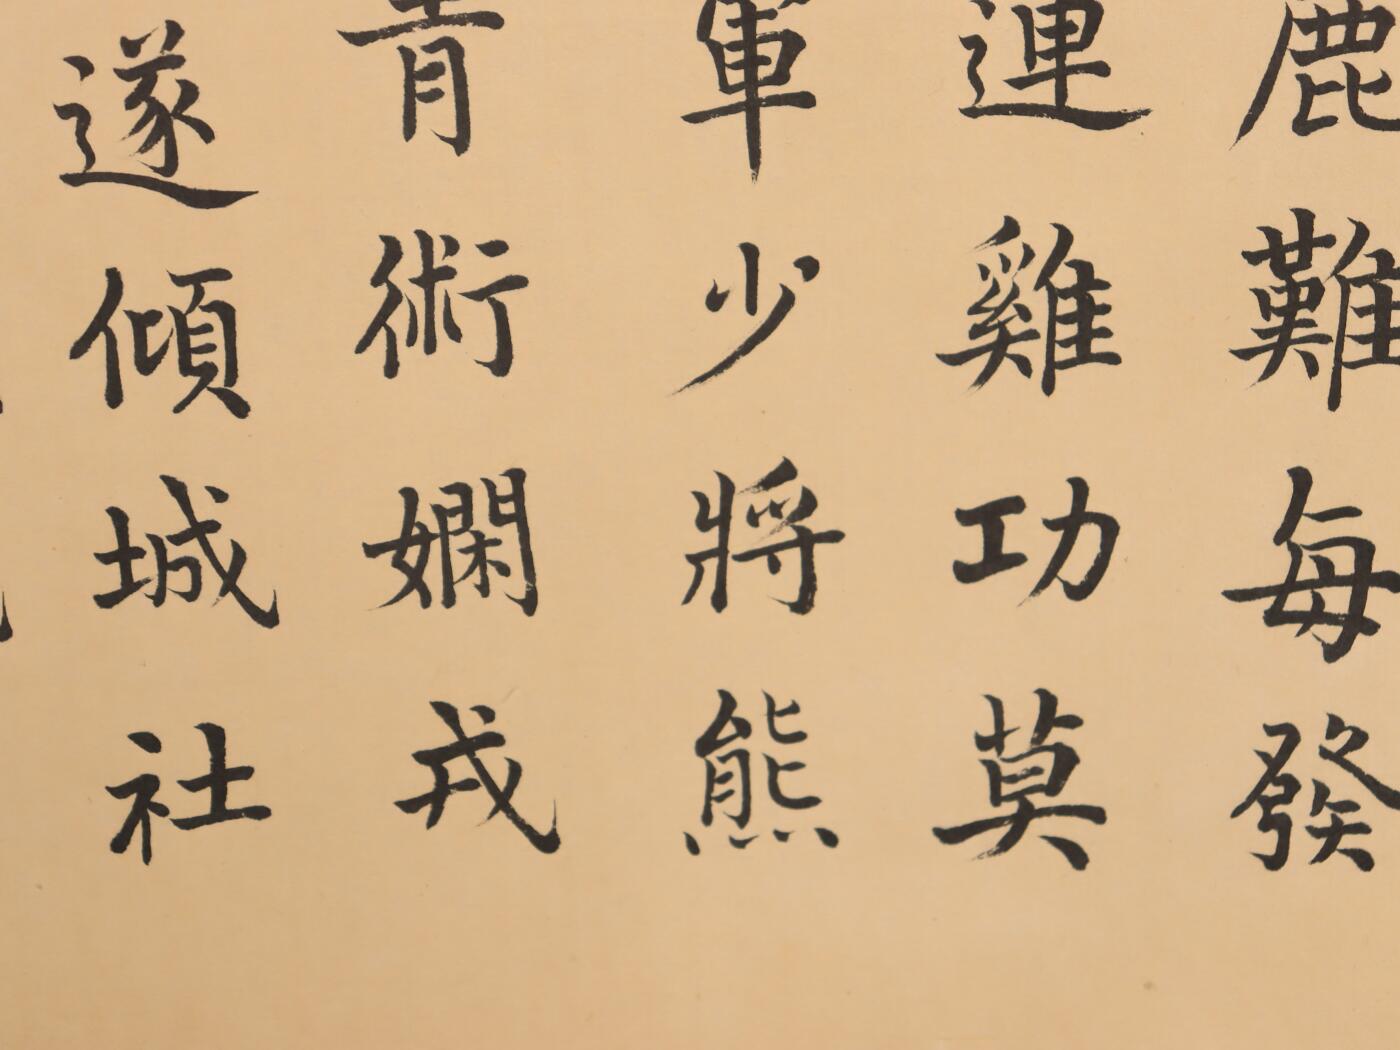 鹿難每發
連雞功莫
軍少將熊
青術嫻戎
遂傾城社